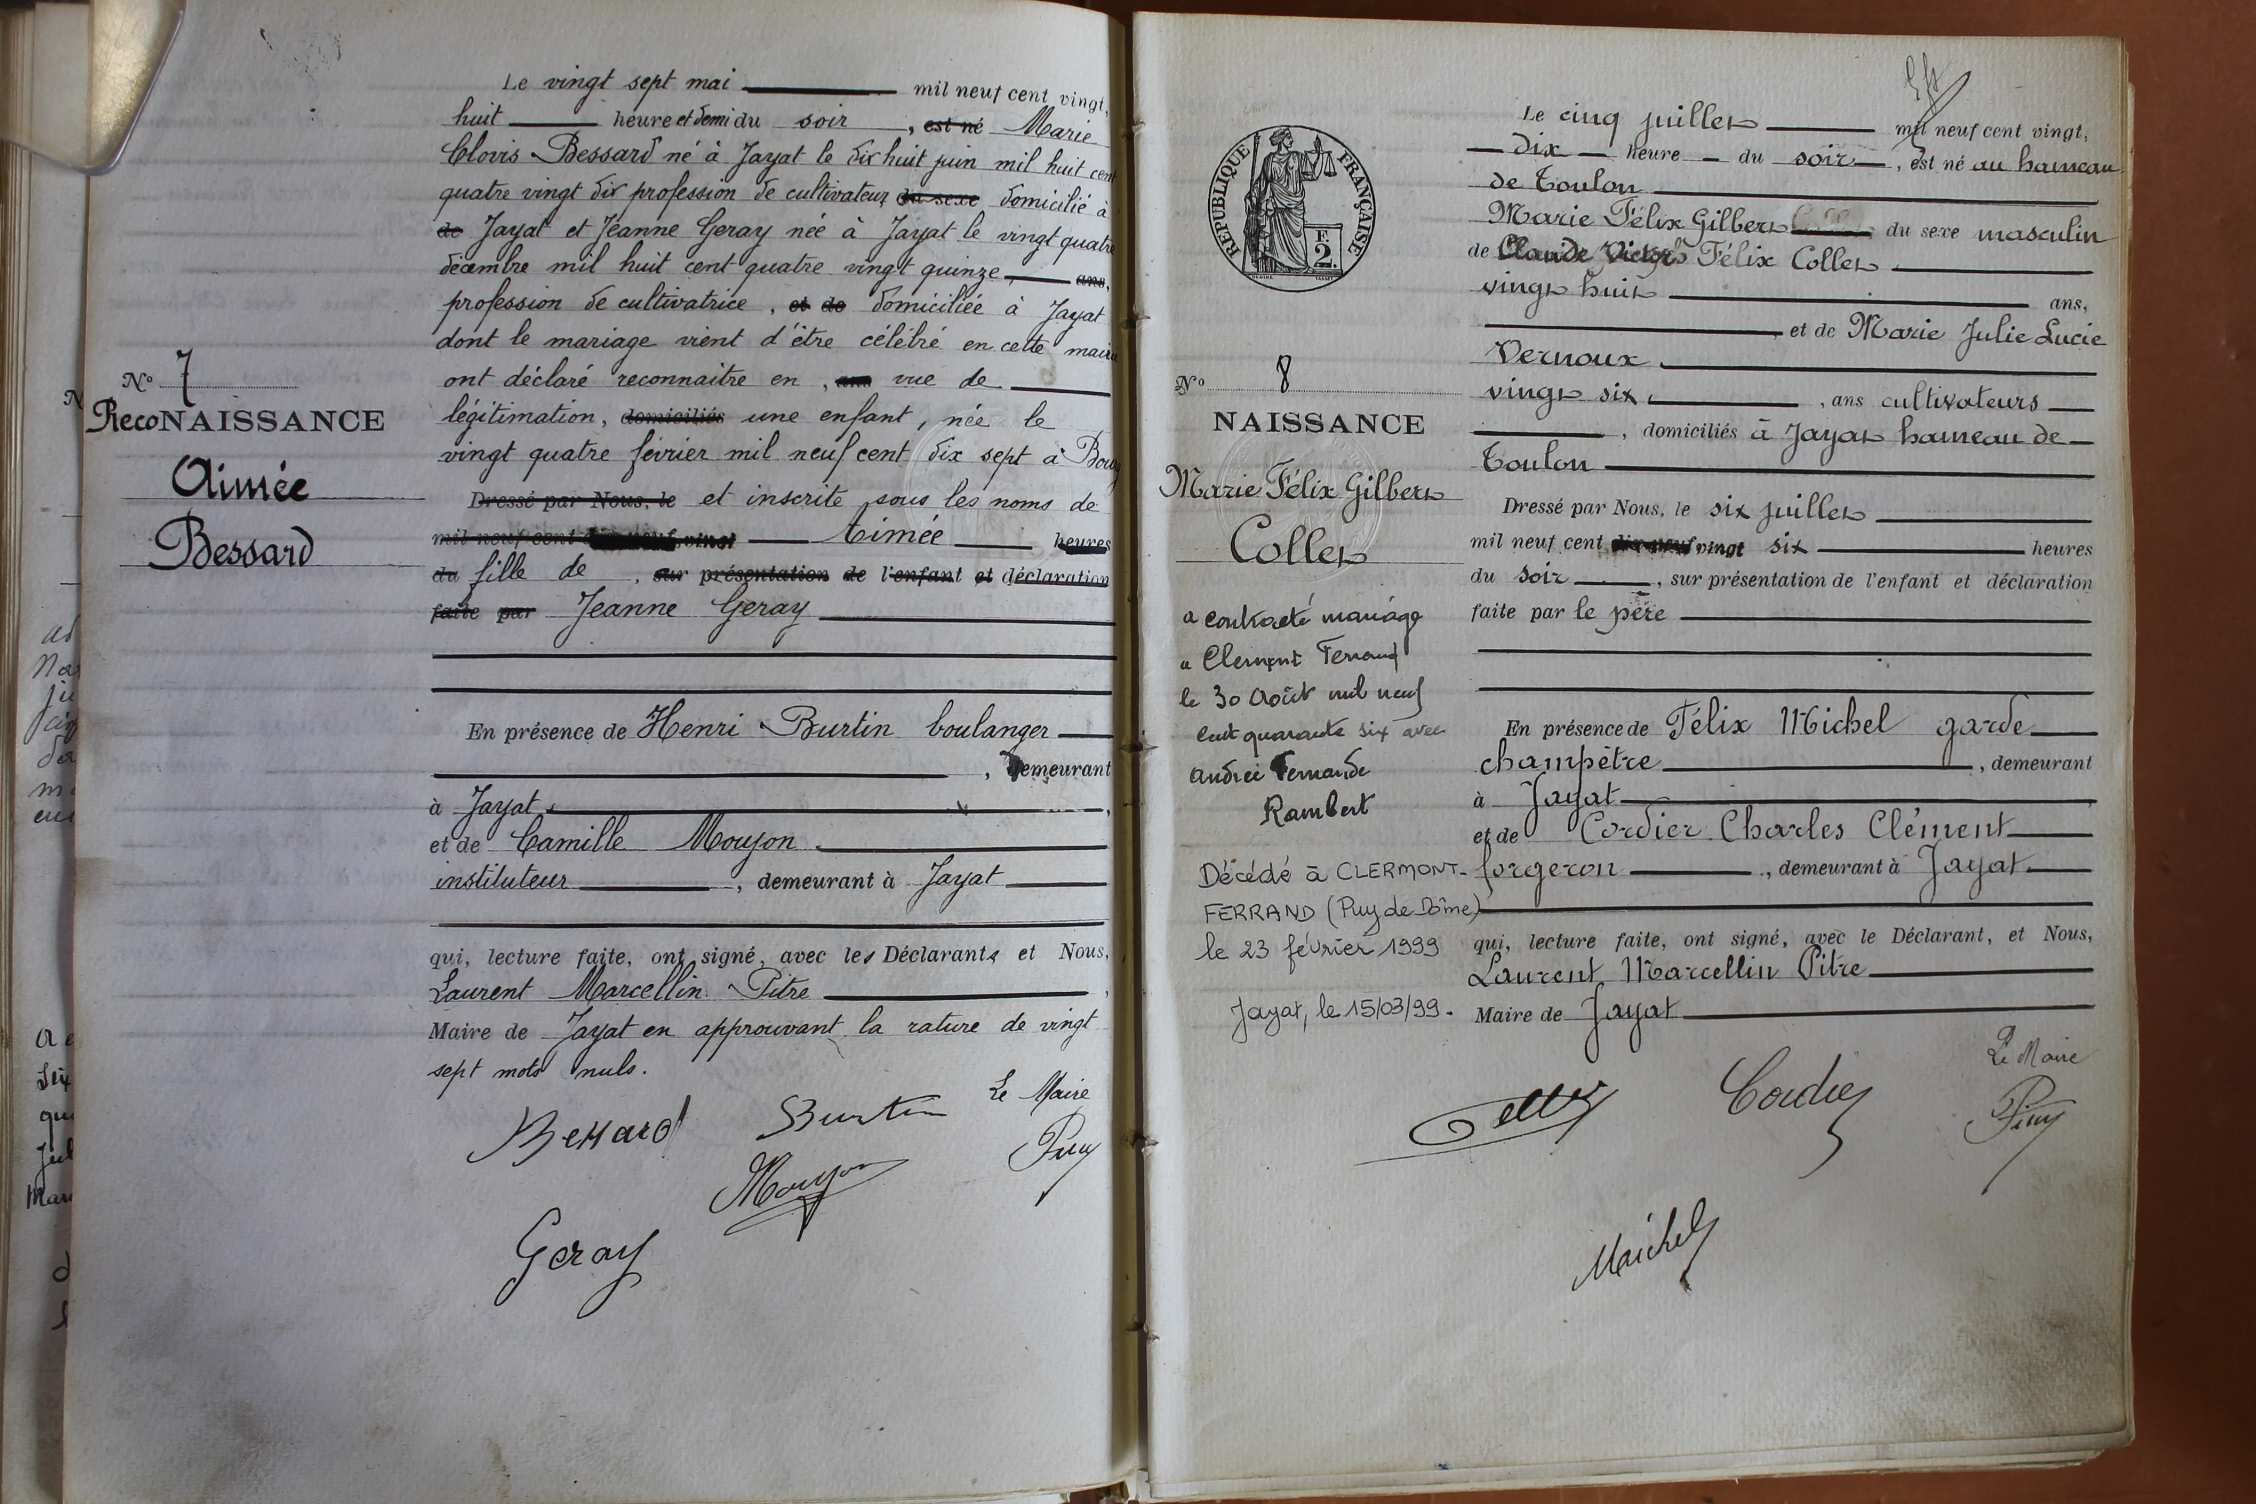 Le vingt sept mai mil neuf cent vingt,
huit heure et demi du soir, est né Marie
Clovis Bessard né à Jayat le dix huit juin mil huit cent
quatre vingt dix profession de cultivateur du sexe domicilié à
de Jayat et Jeanne Geray née à Jayat le vingt quatre
décembre mil huit cent quatre vingt quinze, ans,
profession de cultivatrice, et de domiciliée à Jayat
dont le mariage vient d'être célébré en cette mairie
ont déclaré reconnaitre en, ans vue de
légitimation, domiciliés une enfant, née le
vingt quatre février mil neuf cent dix sept à Bourg
Dressé par Nous, le et inscrite sous les noms de
mil neuf cent vingt Aimée heures
du fille de, sur présentation de l'enfant et déclaration
faite par Jeanne Geray
En présence de Henri Burtin boulanger
, demeurant
à Jayat,
et de Camille Moujon
instituteur, demeurant à Jayat
qui, lecture faite, ont signé, avec les Déclarants et Nous,
Laurent Marcellin Pitre,
Maire de Jayat en approuvant la rature de vingt
sept mots nuls.
Le Maire
Bessard Burtin
Moujon
Geray
No 7
RecoNAISSANCE
Aimée
Bessard
RÉPUBLIQUE FRANÇAISE
F.
2.
No 8
NAISSANCE
Marie Félix Gilbert
Collet
a contracté mariage
a Clermont Ferrand
le 30 Août mil neuf
cent quarante six avec
Andrée Fernande
Rambert
Décédé à CLERMONT-
FERRAND (Puy de Dôme)
le 23 février 1999
Jayat, le 15/03/99.
Le cinq juillet mil neuf cent vingt,
dix heure du soir, est né au hameau
de Toulon
Marie Félix Gilbert du sexe masculin
de Claude Victor Félix Collet
vingt huit ans,
et de Marie Julie Lucie
Vernoux
vingt six, ans cultivateurs
, domiciliés à Jayat hameau de
Toulon
Dressé par Nous, le six juillet
mil neuf cent dix neuf vingt six heures
du soir, sur présentation de l'enfant et déclaration
faite par le père
En présence de Félix Michel garde
champêtre, demeurant
à Jayat
et de Cordier Charles Clément
forgeron, demeurant à Jayat
qui, lecture faite, ont signé, avec le Déclarant, et Nous,
Laurent Marcellin Pitre
Maire de Jayat
Le Maire